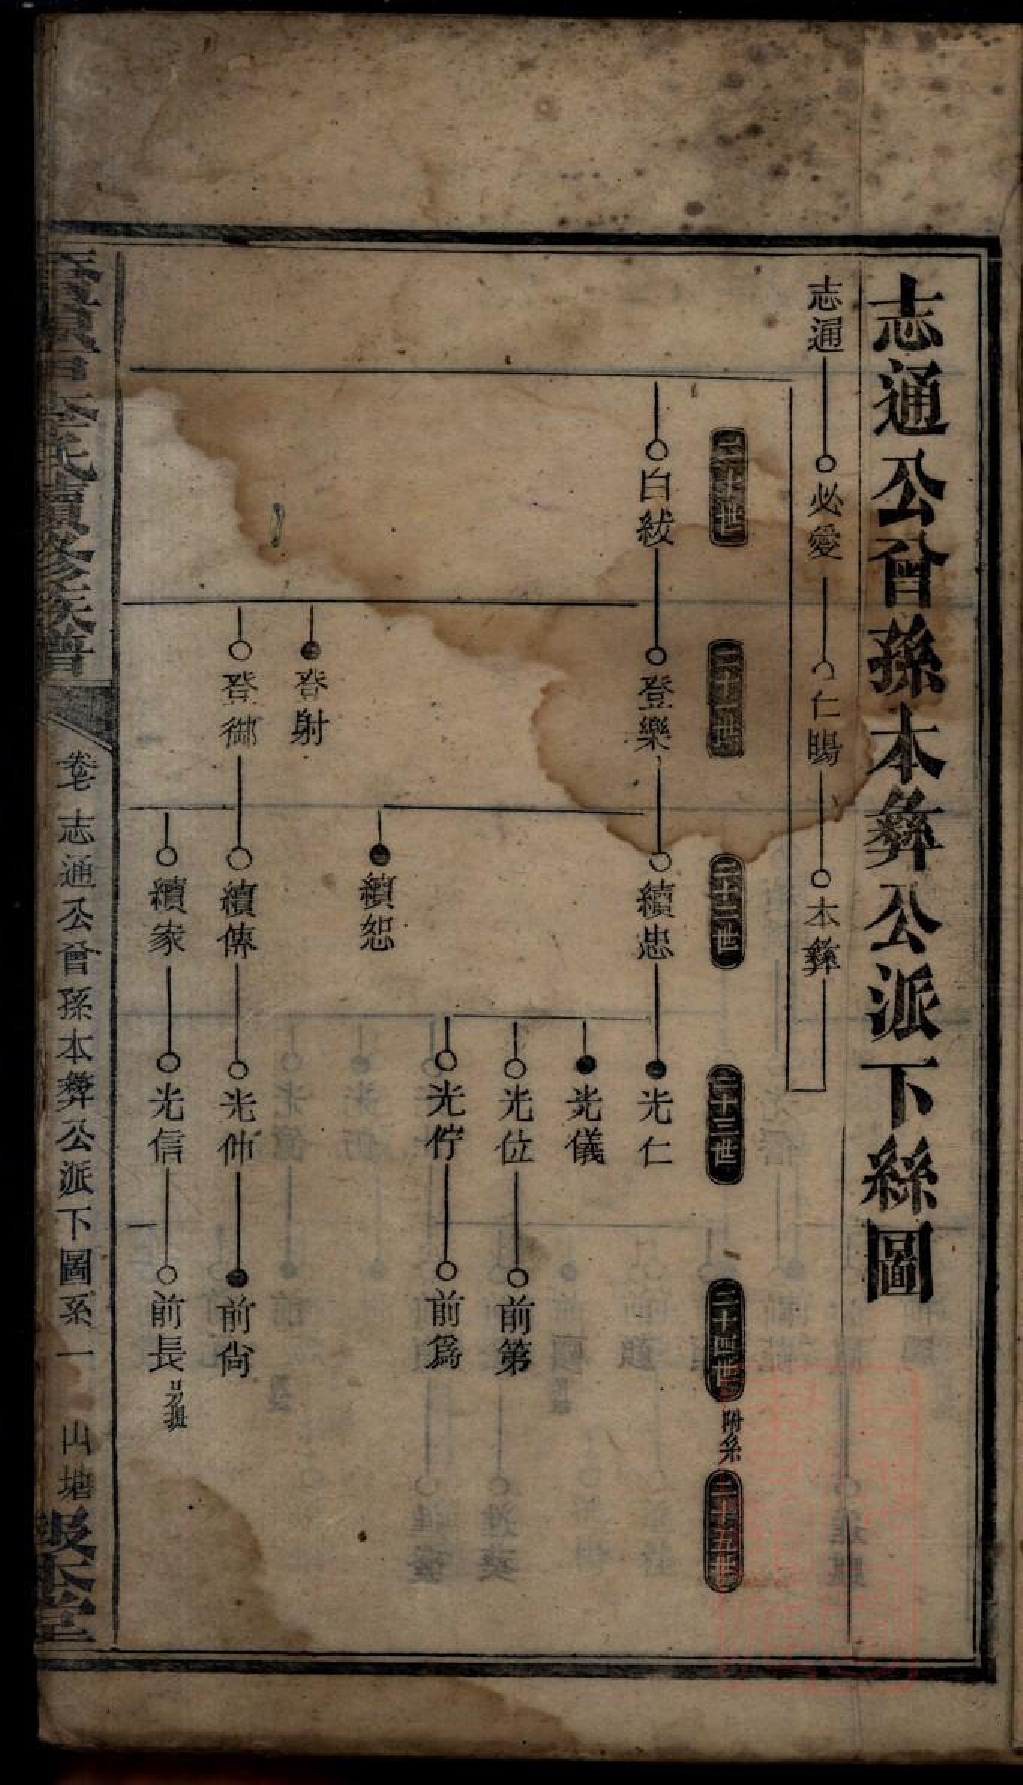 志通公曾孫本彝公派下絲圖
志通
必愛
仁賜
本彝
二十世
二十一世
二十二世
二十三世
二十四世
附系
二十五世
白紱
登樂
續忠
光仁
光儀
光位
前第
光佇
前爲
續恕
登射
登御
續傳
光仲
前尙
續家
光信
前長
李氏續修族譜
卷七
志通公曾孫本彝公派下圖系一
山塘
敦本堂